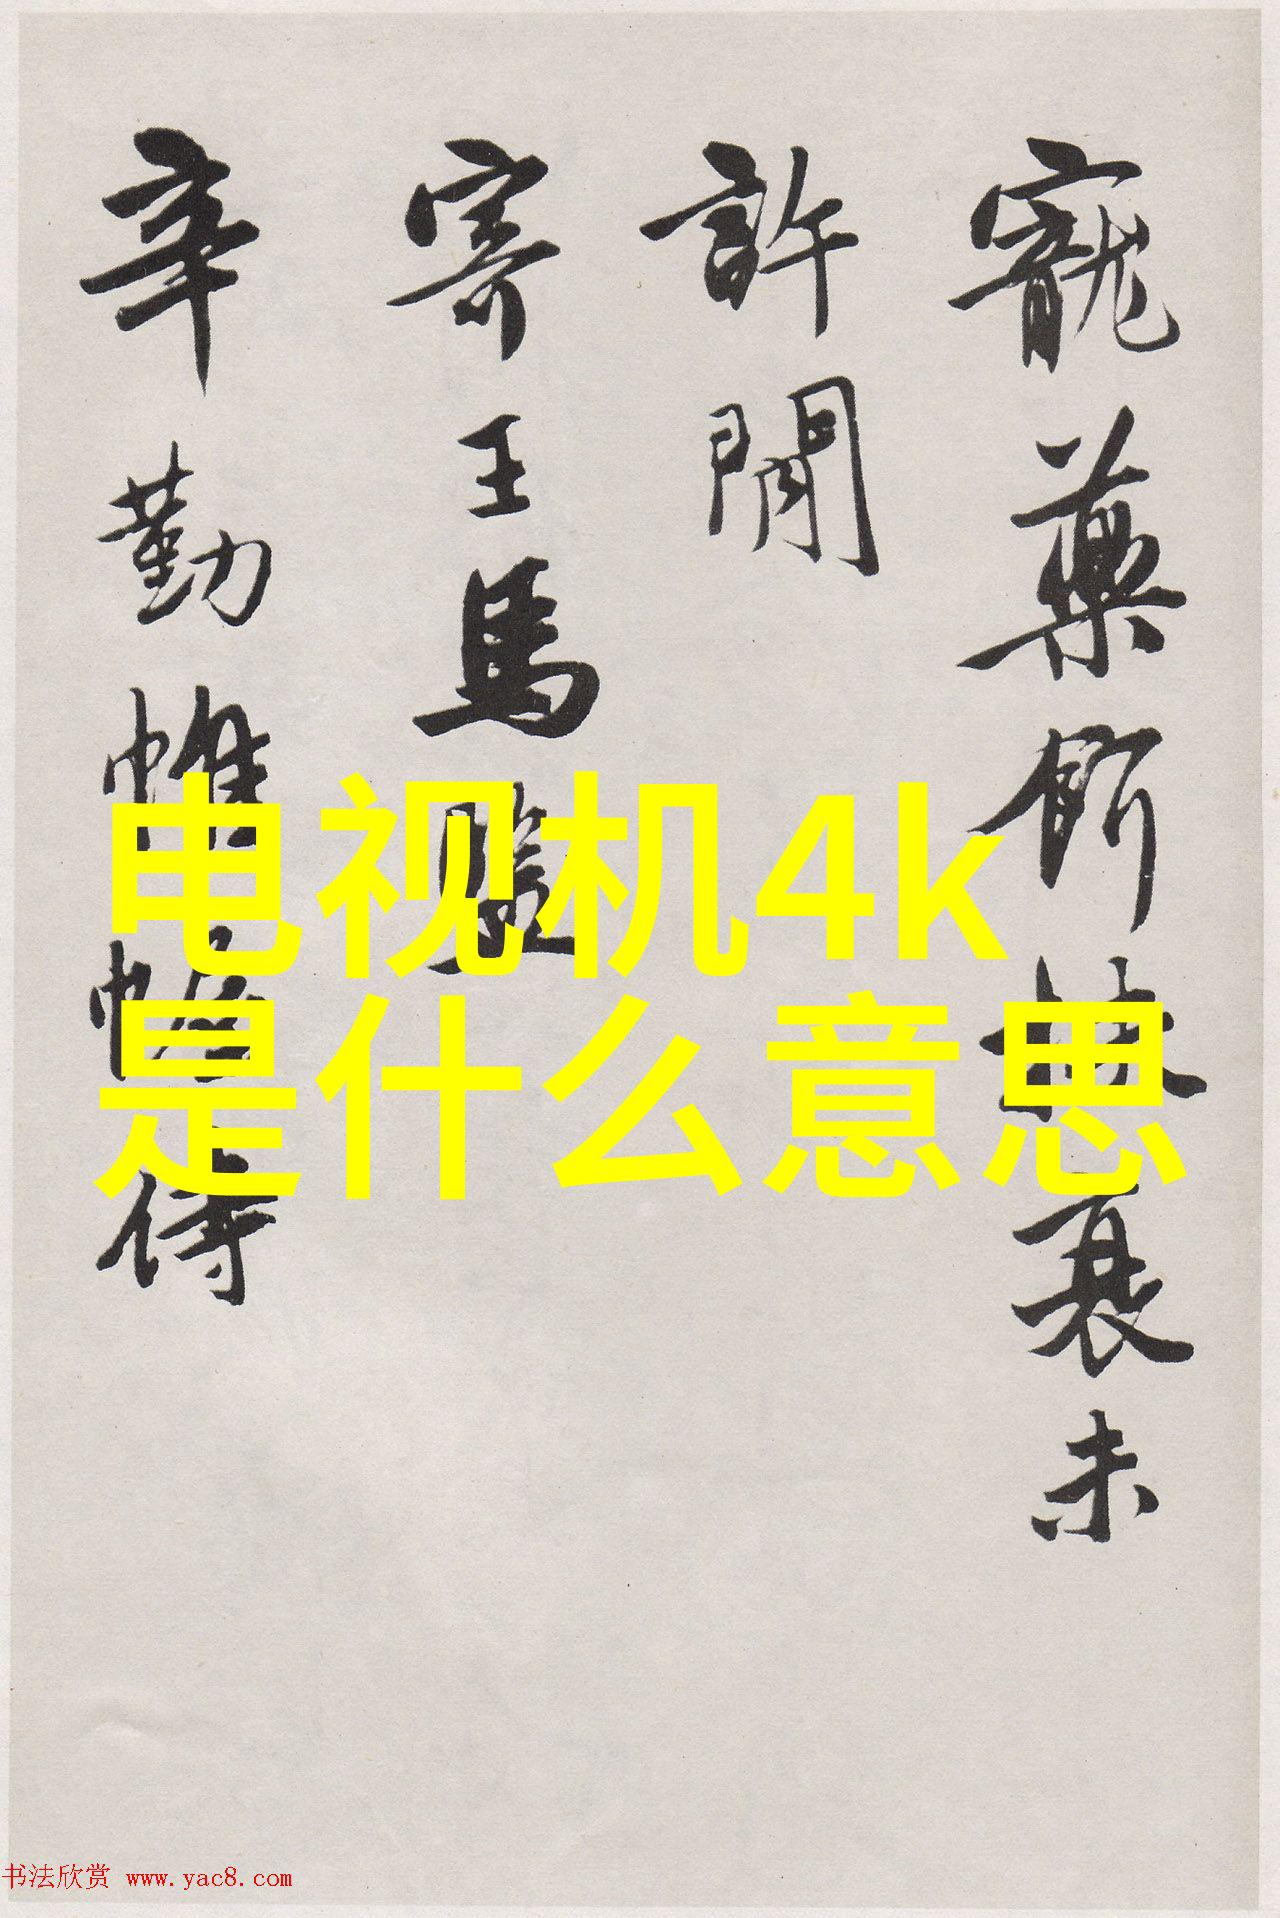 寵藥餌扶衰未
許閒
寄王馬
辛勤帷幄侍
电视机4k
是什么意思
书法欣赏 www.yac8.com